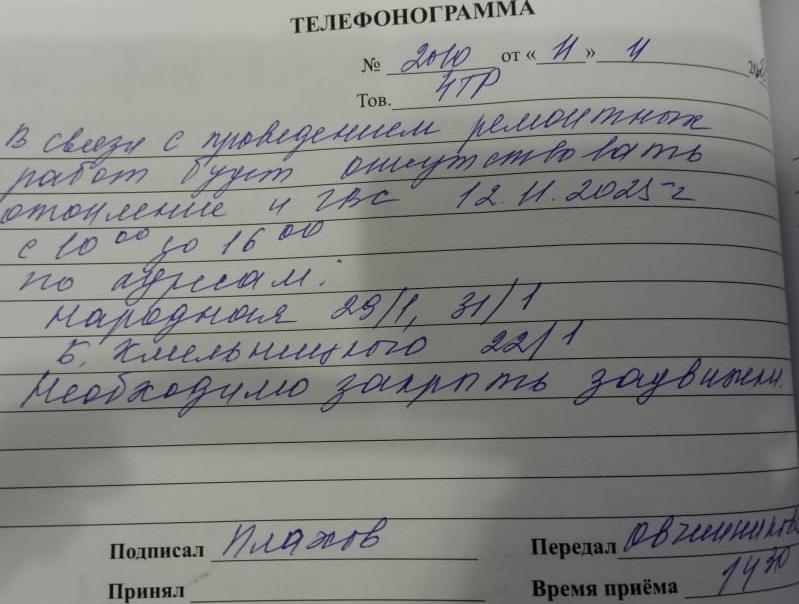 ТЕЛЕФОНОГРАММА
№ 2010 от « 11 » 11 202
Тов. ЧТР
В связи с проведением ремонтных
работ будет отсутствовать
отопление и ГВС 12.11.2025г
с 10 00 до 16 00
по адресам:
Народная 29/1, 31/1
Б. Хмельницкого 22/1
Необходимо закрыть задвижки.
Подписал Плахов Передал Овчинников
Принял Время приёма 14 30